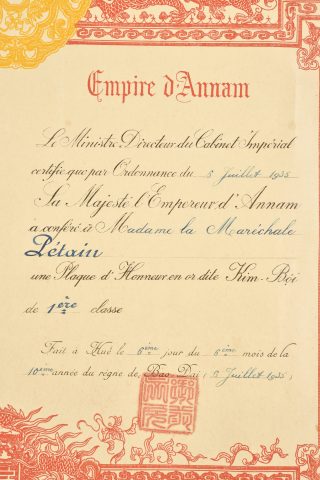 Empire d'Annam
Le Ministre Directeur du Cabinet Impérial
certifie que par Ordonnance du 5 Juillet 1935
Sa Majesté l'Empereur d'Annam
a conféré à Madame la Maréchale
Pétain
une Plaque d'Honneur en or dite Kim-Bôi
de 1ère classe
Fait à Hué le 6ème jour du 6ème mois de la
10ème année du règne de Bao-Dai; 5 Juillet 1935;